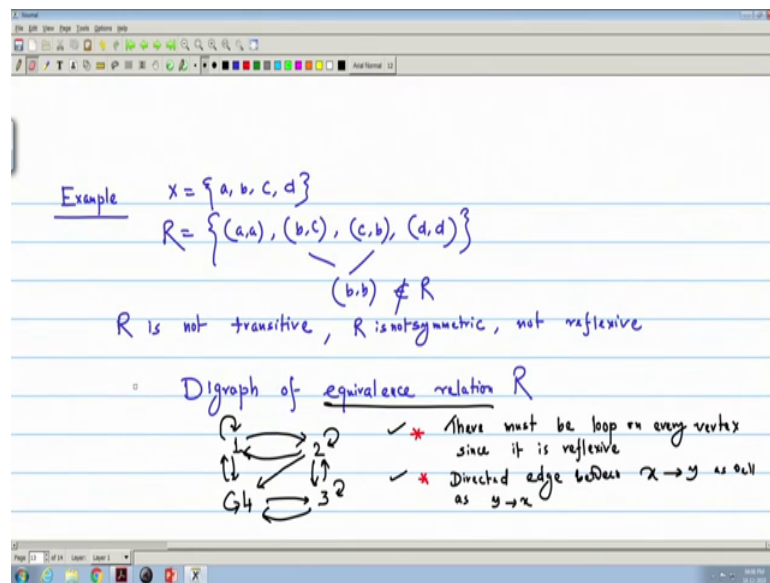 Journal
File Edit View Page Tools Options Help
Arial Normal 12
Example X = {a, b, c, d}
R = {(a,a), (b,c), (c,b), (d,d)}
(b,b) ∉ R
R is not transitive, R is not symmetric, not reflexive
Digraph of equivalence relation R
1 2
4 3
✓ * There must be loop on every vertex
since it is reflexive
✓ * Directed edge between x → y as well
as y → x
Page 13 of 14 Layer: Layer 1